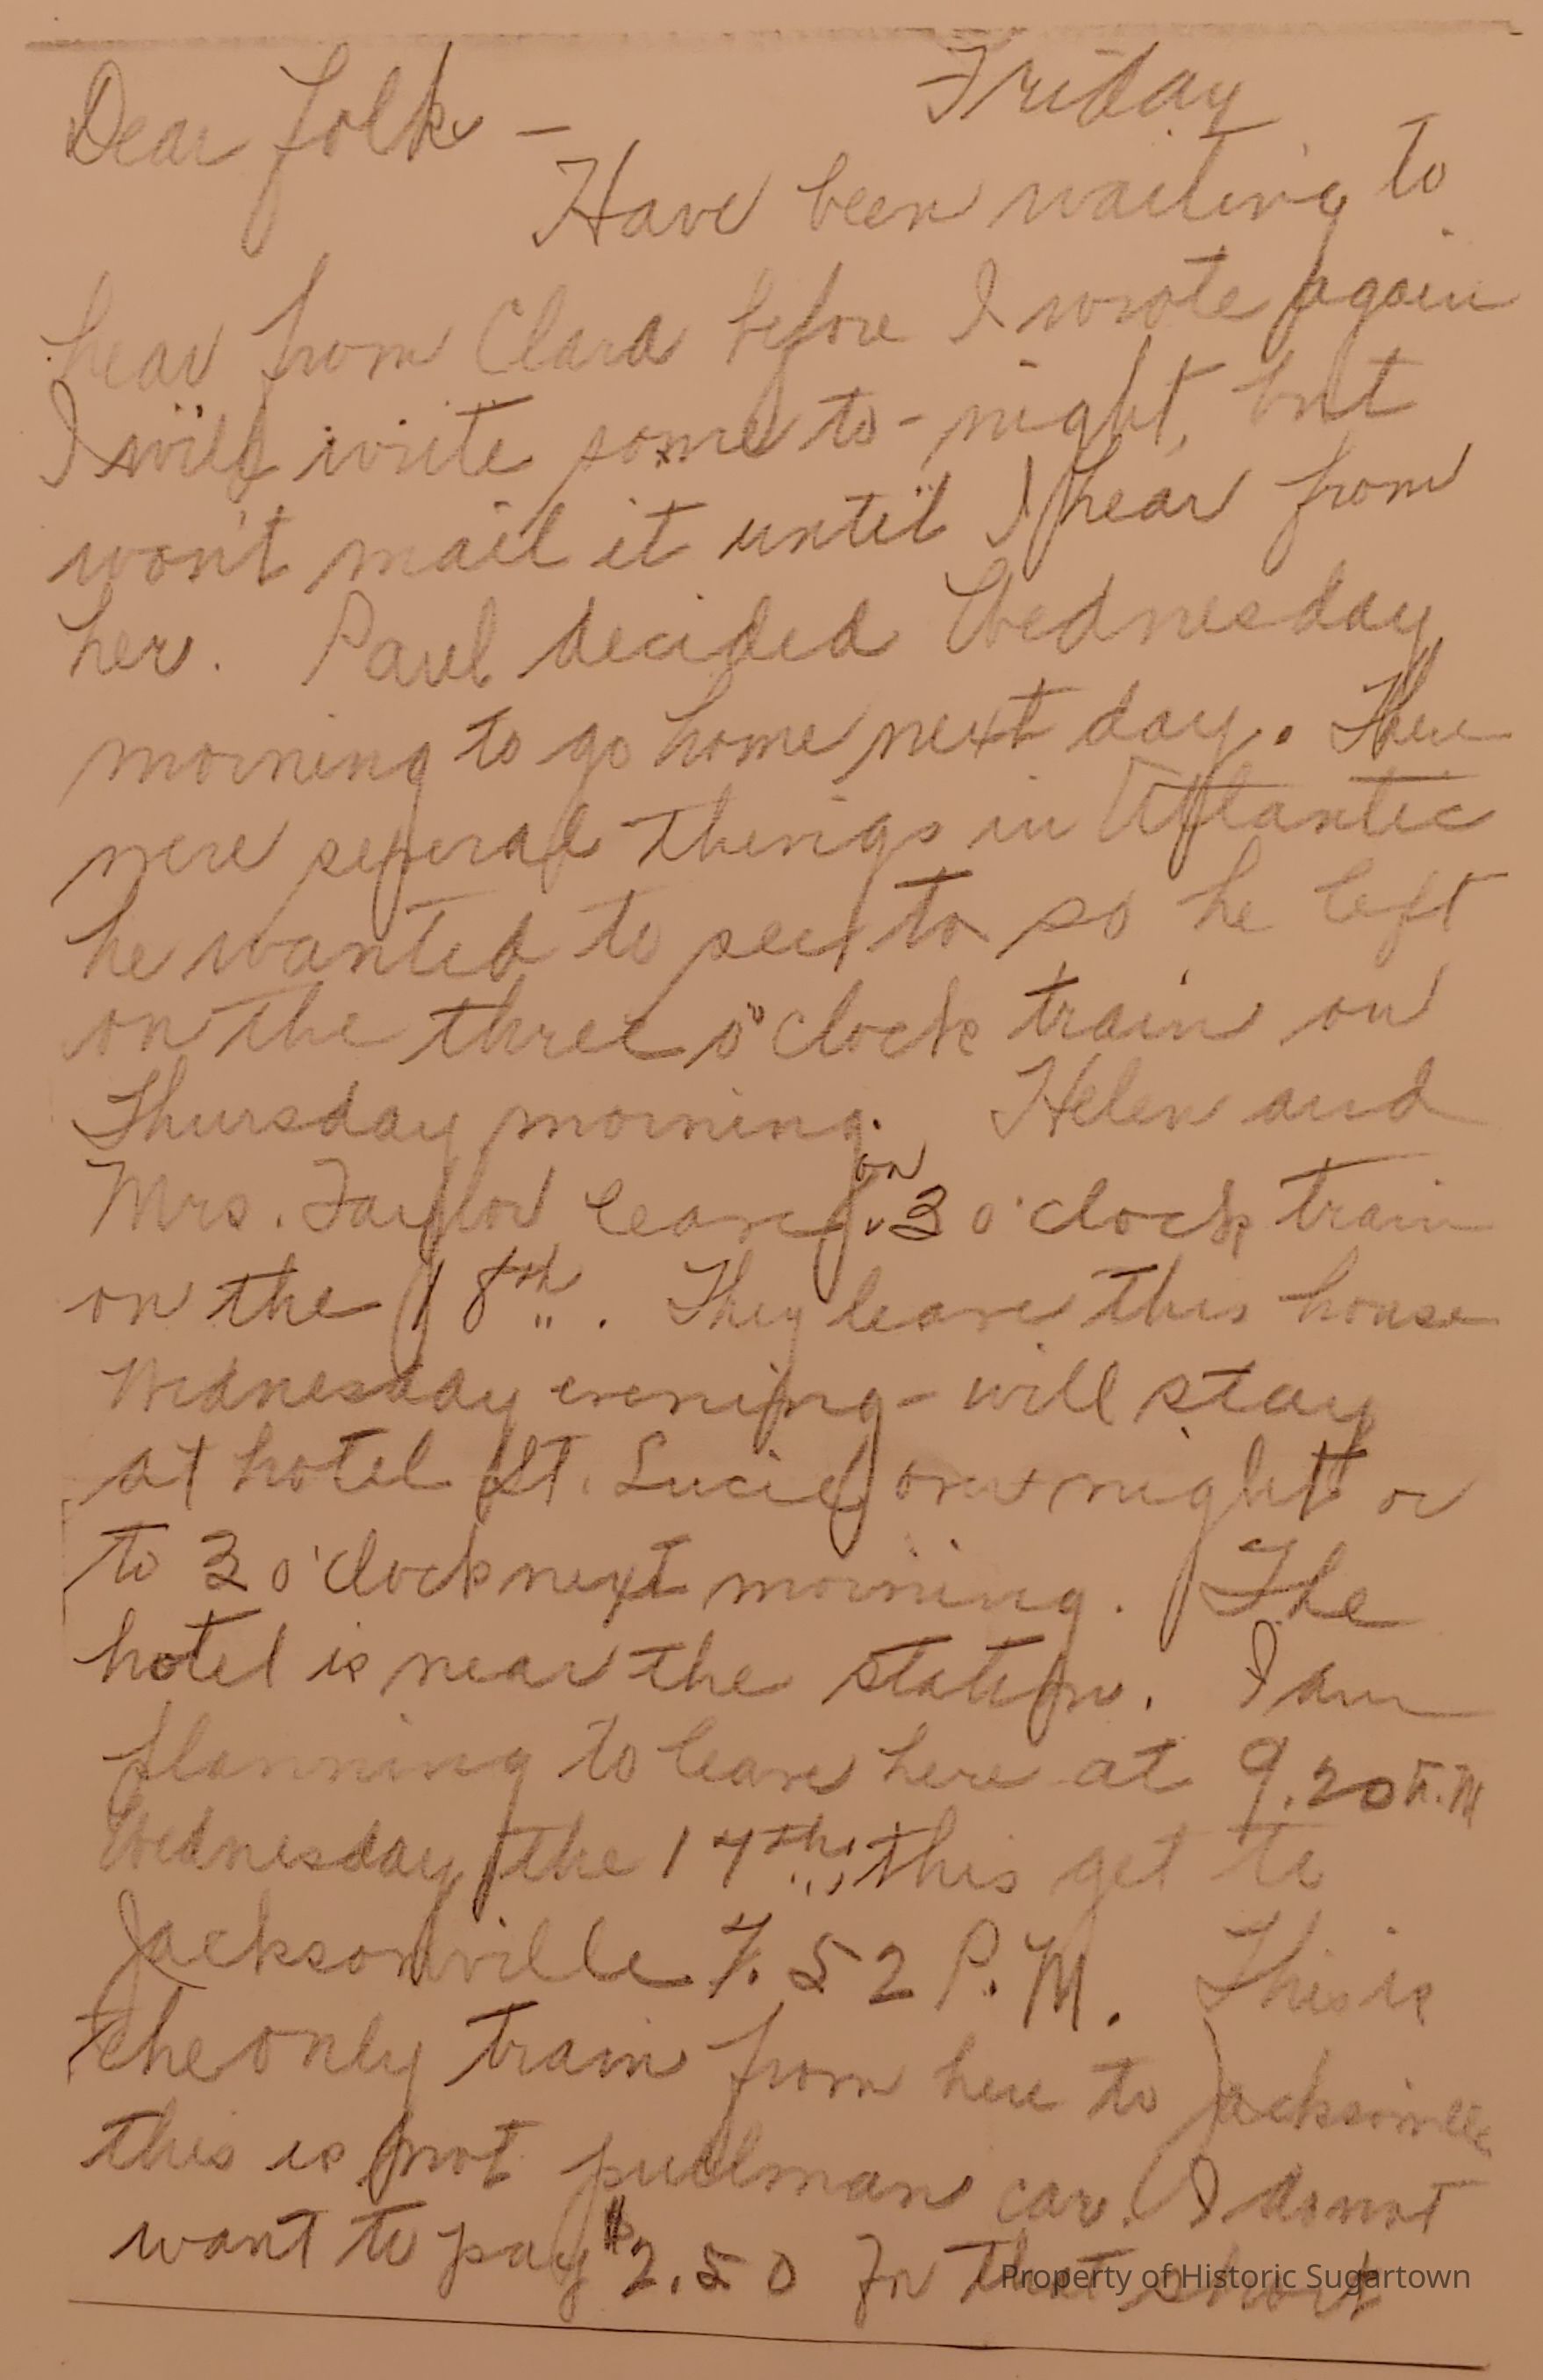 Friday
Dear folks —
Have been waiting to
hear from Clara before I wrote again
I will write some to-night, but
won't mail it until I hear from
her. Paul decided Wednesday
morning to go home next day. There
were several things in Atlantic
he wanted to see to so he left
on the three o'clock train on
Thursday morning. Helen and
Mrs. Taylor leave on 3 o'clock train
on the 18th. They leave this house
Wednesday evening - will stay
at hotel St. Lucie one night or
to 3 o'clock next morning. The
hotel is near the station. I am
planning to leave here at 9.20 A.M
Wednesday the 17th, this get to
Jacksonville 7.52 P.M. This is
the only train from here to Jacksonville
this is not pullman car. I do not
want to pay $2.50 for that short
Property of Historic Sugartown